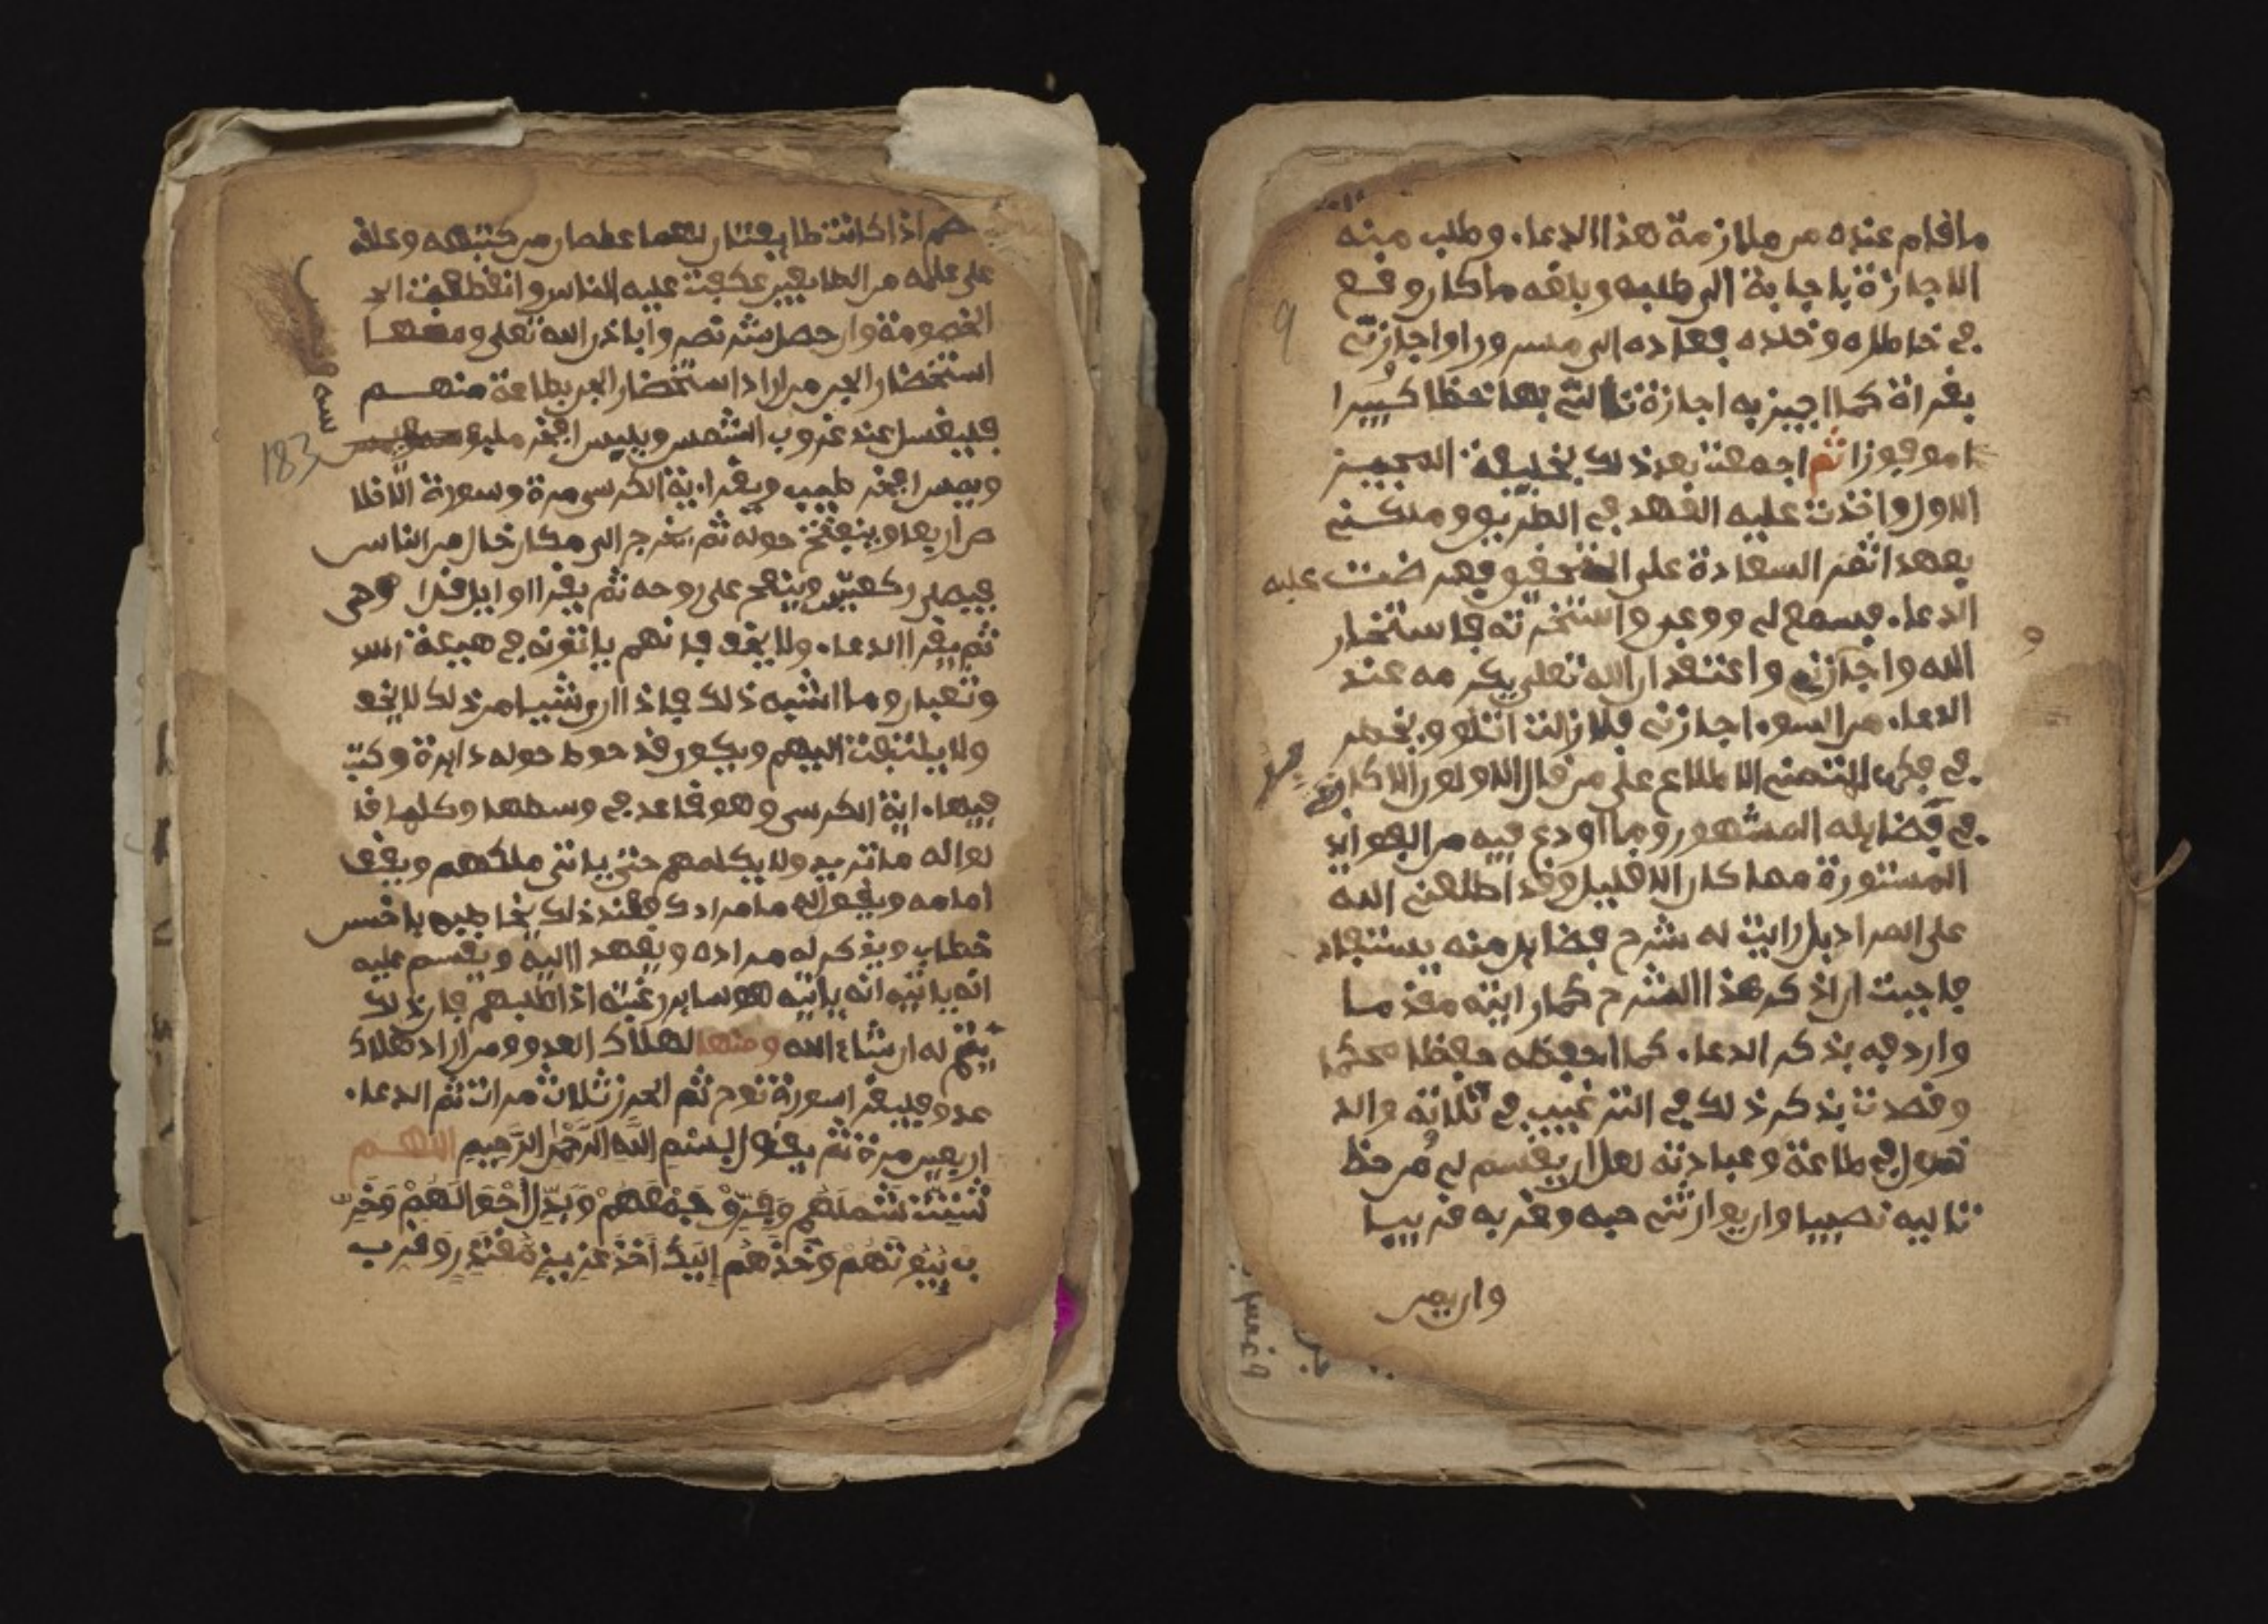 ما قام عنده من ملازمة هذا الدعاء وطلب منه
الاجازة باجابة الى طلبه وبلغه ما كان وقع
في خاطره وخلده فعاده الى مسرورا واجازني
بقراة كما اجيز به اجازة نالني بها حظا كبيرا
موفورا ثم اجمعت بعد ذلك بخليفة المجيز
الاول واخذت عليه العهد في الطريق وملكني
بعهد اثمر السعادة على التحقيق فعرضت عليه
الدعاء فسمع لي ووعى واستخرته فاستخار
الله واجازني واعتقد ان الله تعلى يكرمه عند
الدعاء من السوء اجازني فلا زالت اتلو ويخطر
في فكري التمني الاطلاع على من قال الاولون الاكارم
في فضايله المشهور وما اودع فيه من الفوايد
المستورة فما كان الا قليل وقد اطلعني الله
على المراد بل رايت له شرح فضايل منه يستفاد
فاحببت ان اذكر هذا الشرح كما رايته مقدما
واردفه بذكر الدعاء كما احفظه حفظا محكما
وقصدت بذكر ذلك في الترغيب في تلاته والد
خول في طاعة وعبادته لعل ان يقسم لي من حظ
تاليه نصيبا وان يوارثني حبه وقربه قريبا
وان يمن
9
خصم اذا كانت طايفتان لقعما عطمار من كتبهه وعلقه
على علمه من الطايفين عكفت عليه الناس وانقطعت الا
الخصومة وان حصل شر نصروا باذن الله تعلى ومنها
استحضار الجن من اراد استحضار الجن بطاعة منهم
فليغسل عند غروب الشمس ويلبس افخر ملبو
ويمس افخر طيب ويقرا اية الكرسي مرة وسورة الاخلا
ص اربعا وينفخ حوله ثم يخرج الى مكان خال من الناس
فيصلي ركعتين وينفخ على روحه ثم يقرا اوايل قل اوحي
ثم يقرا الدعاء ولا يخف فانهم ياتونه في هيعة اسد
وثعبان وما اشبه ذلك فاذا اري شيا من ذلك لا يخف
ولا يلتفت اليهم ويكون قد حوط حوله دايرة وكتب
فيها اية الكرسي وهو قاعد في وسطها وكلما قا
لوا له ما تريد ولا يكلمهم حتى ياتي ملكهم ويقف
امامه ويقول له ما مرادك فعند ذلك يخاطبه باحسن
خطاب ويذكر له مراده ويعهد اليه ويقسم عليه
انه ياتيه انه ياتيه هو ساير رغبته اذا طلبهم فان ذلك
يتم له ان شاء الله ومنها لهلاك العدو ومن اراد هلاك
عدو فليقرا سورة نوح ثم الجن ثلاث مرات ثم الدعاء
اربعين مرة ثم يقول بسم الله الرحمن الرحيم اللهم
شَتِّت شملهم وفرق جمعهم وبدل احوالهم وخر
ب بيوتهم وخذهم اليك اخذ عزيز مقتدر وقرب
183